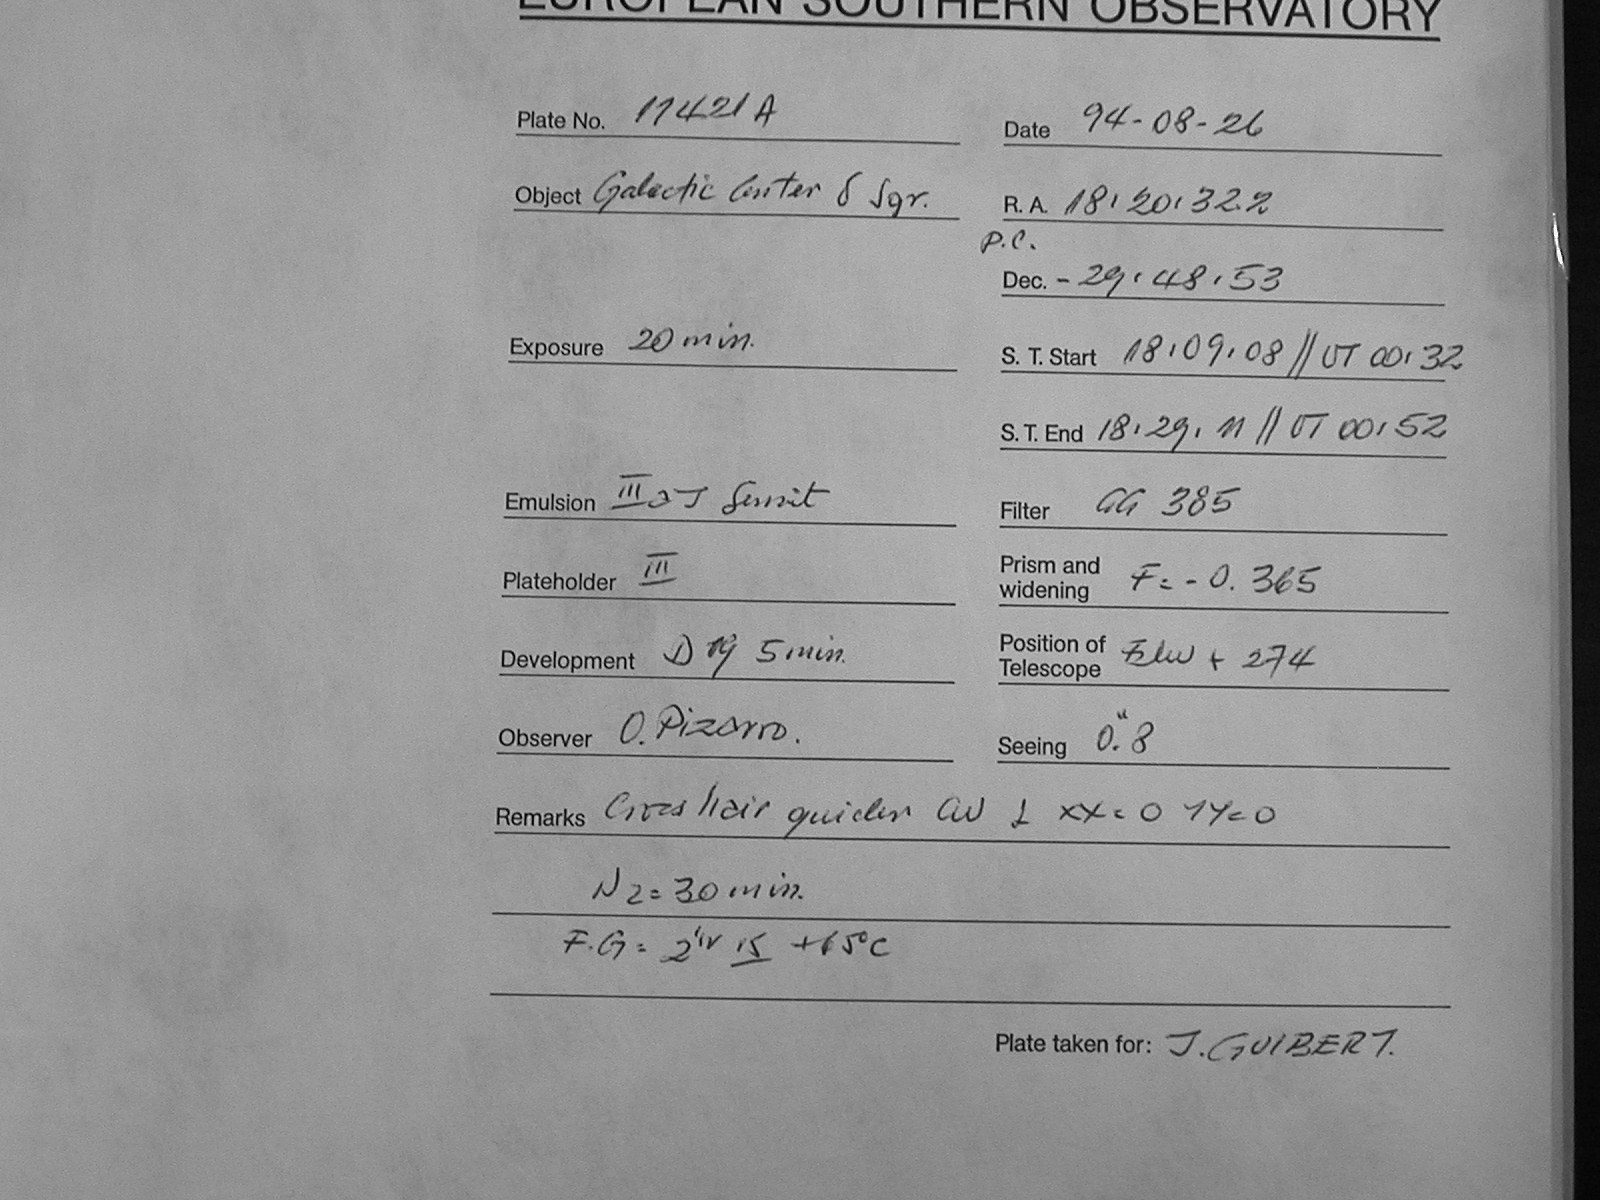 EUROPEAN SOUTHERN OBSERVATORY
Plate No. 11421 A
Date 94-08-26
Object Galactic Center δ Sgr.
R. A. 18:20:32.2
P.C.
Dec. -29:48:53
Exposure 20 min.
S. T. Start 18:09:08 // UT 00:32
S. T. End 18:29:11 // UT 00:52
Emulsion III a J Sensit
Filter GG 385
Plateholder III
Prism and widening F= -0.365
Development D 19 5 min.
Position of Telescope + 274
Observer O. Pizarro.
Seeing 0."8
Remarks Cross hair guider CW ⊥ XX=0 YY=0
N2=30 min.
F.G= +65°C
Plate taken for: J. GUIBERT.